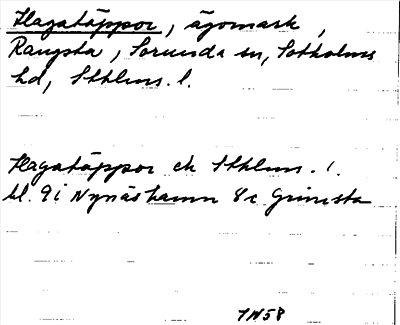 Hagatäppor, ägomark,
Rangsta, Sorunda sn, Sotholms
hd, Sthlms. l.
Hagatäppor ek Sthlms. l.
bl. 9i Nynäshamn 8c Grimsta
7N58